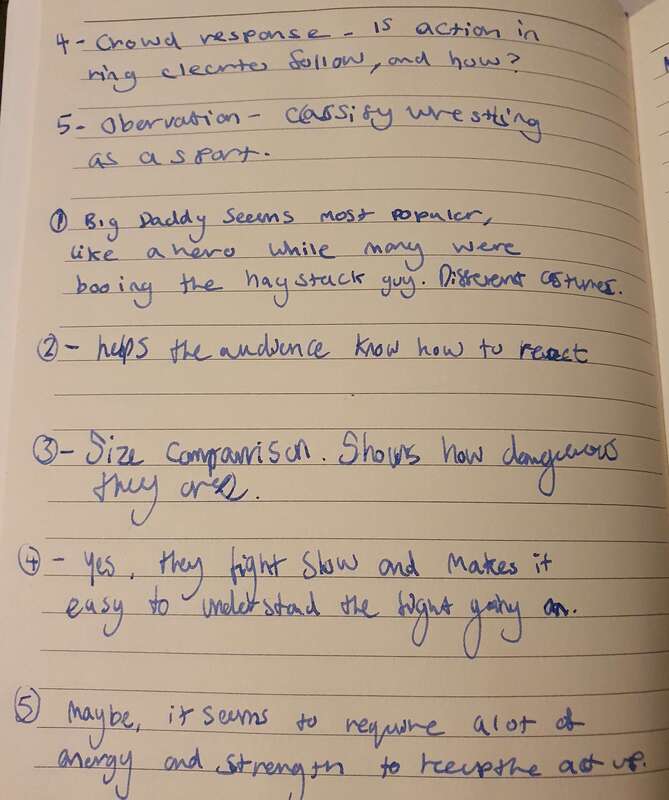 4 - Crowd response - is action in
ring clear to follow, and how?
5 - Obervation - classify wrestling
as a sport.
① Big Daddy seems most popular,
like a hero while many were
booing the haystack guy. Different costumes.
② - helps the audience know how to react
③ - Size comparrison. Shows how dangerous
they are.
④ - Yes, they fight slow and makes it
easy to understand the fight going on.
⑤ Maybe, it seems to require alot of
energy and strength to keep the act up.